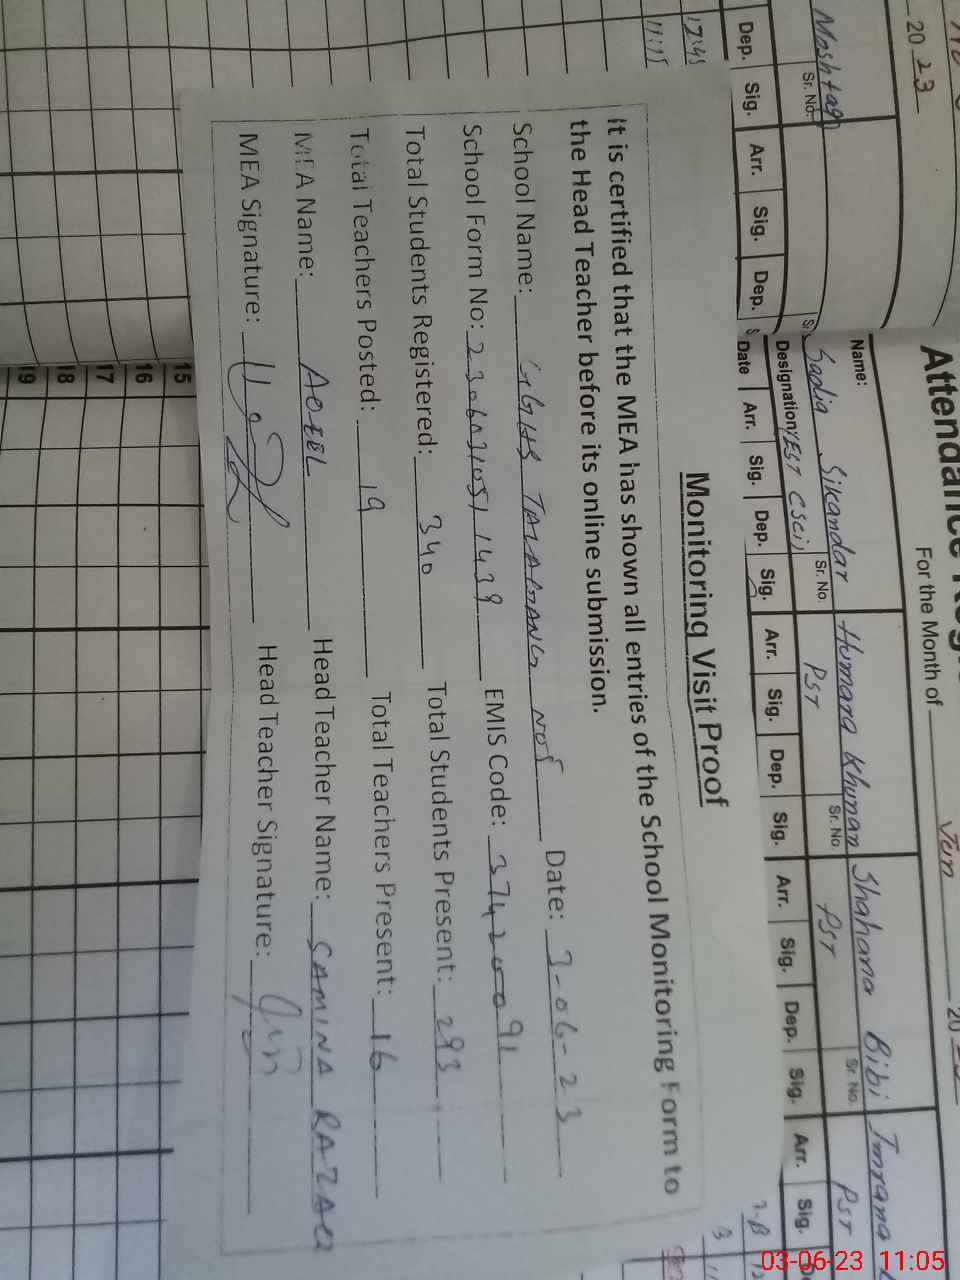 Monitoring Visit Proof
It is certified that the MEA has shown all entries of the School Monitoring Form to
the Head Teacher before its online submission.
School Name: GGHS TALAGANG NO5 Date: 3-06-23
School Form No: EMIS Code: 37420091
Total Students Registered: 340 Total Students Present: 293
Total Teachers Posted: 19 Total Teachers Present: 16
MEA Name: Head Teacher Name: SAMINA RAZAQ
MEA Signature: Head Teacher Signature:
For the Month of Jun 20
Name: Sadia Sikandar Humara Shahana Bibi Imrana
Designation: EST Sr. No. PST Sr. No. PST Sr. No. PST
Date Arr. Sig. Dep. Sig. Arr. Sig. Dep. Sig. Arr. Sig. Dep. Sig. Arr. Sig.
2023
Moshtaq
Sr. No.
Dep. Sig. Arr. Sig. Dep.
17:45
11:15
15
16
17
18
19
03-06-23 11:05